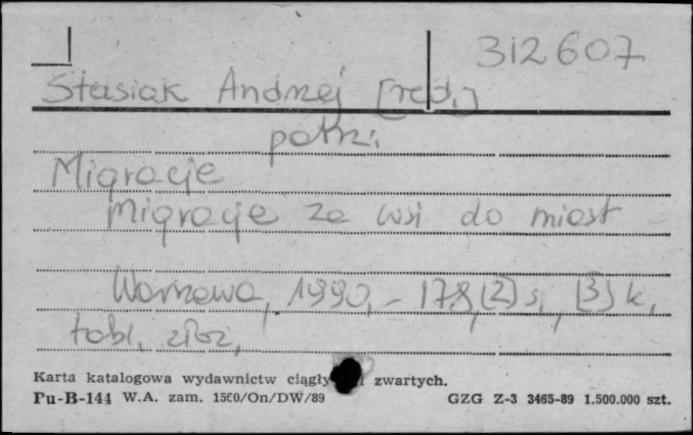 312607
Stasiak Andrzej [red.]
patrz:
Migracje
Migracje ze wsi do miast
Warszawa, 1990, - 178, [2] s., [3] k.
tabl. złoż.
Karta katalogowa wydawnictw ciągły i zwartych.
Pu-B-144 W.A. zam. 1560/On/DW/89 GZG Z-3 3465-89 1.500.000 szt.